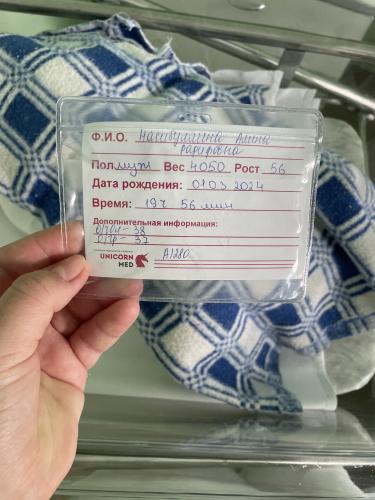 Ф.И.О. Наибуллина Алина
Рафифовна
Пол муж Вес 4050 Рост 56
Дата рождения: 01 03 2024
Время: 19 ч 56 мин
Дополнительная информация:
- 38
- 37
UNICORN
MED
A1280